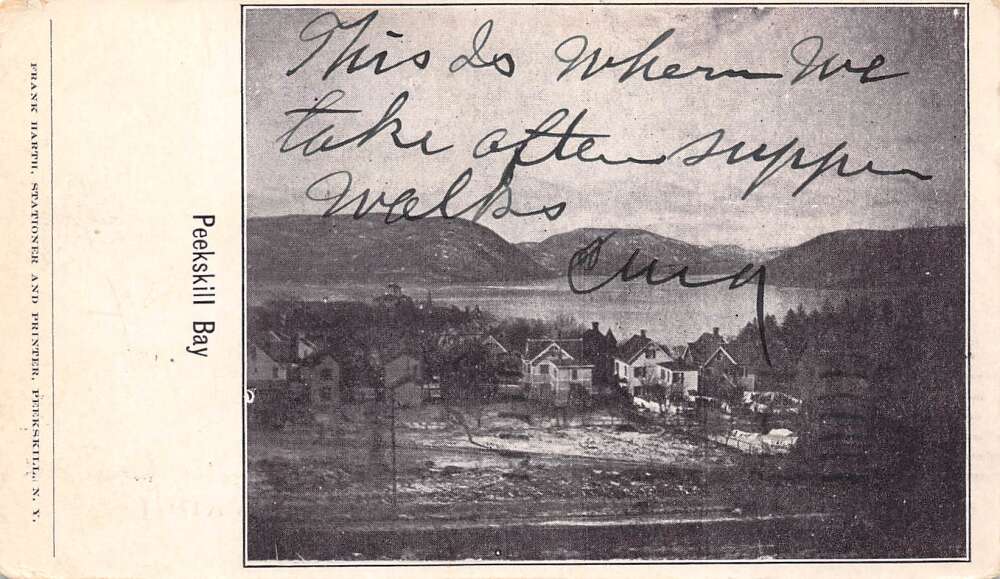 This Is Where We
take after supper
walks
Peekskill Bay
FRANK HARTH, STATIONER AND PRINTER, PEEKSKILL, N. Y.